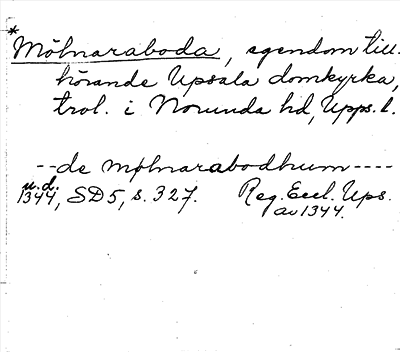 *
Mölnaraboda, egendom till-
hörande Upsala domkyrka,
trol. i Norunda hd, Upps. l.
--de mølnarabodhum----
u.d.
1344, SD5, s. 327. Reg. Eccl. Ups.
av 1344.